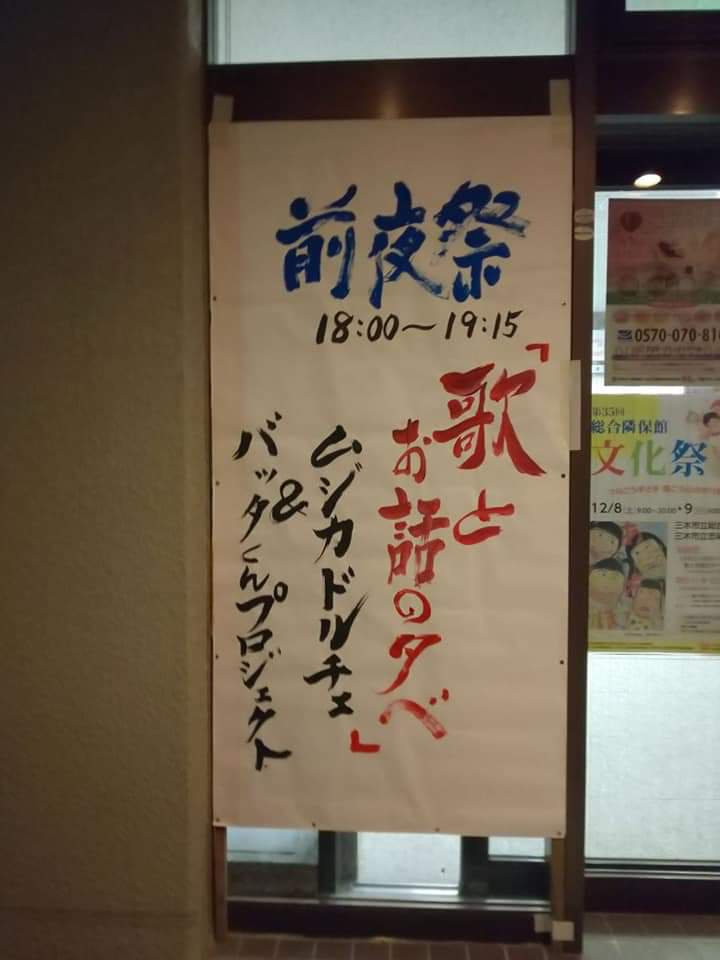 前夜祭
18:00〜19:15
「歌と
お話の夕べ」
ムジカドルチェ
&
バッタくんプロジェクト
0570-070-810
第35回
総合隣保館
文化祭
12/8(土)9:00~20:00・9